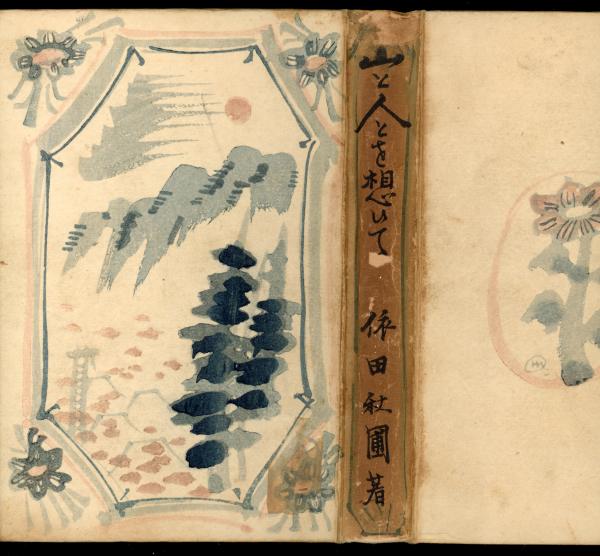 山と人とを想いて
依田秋圃著